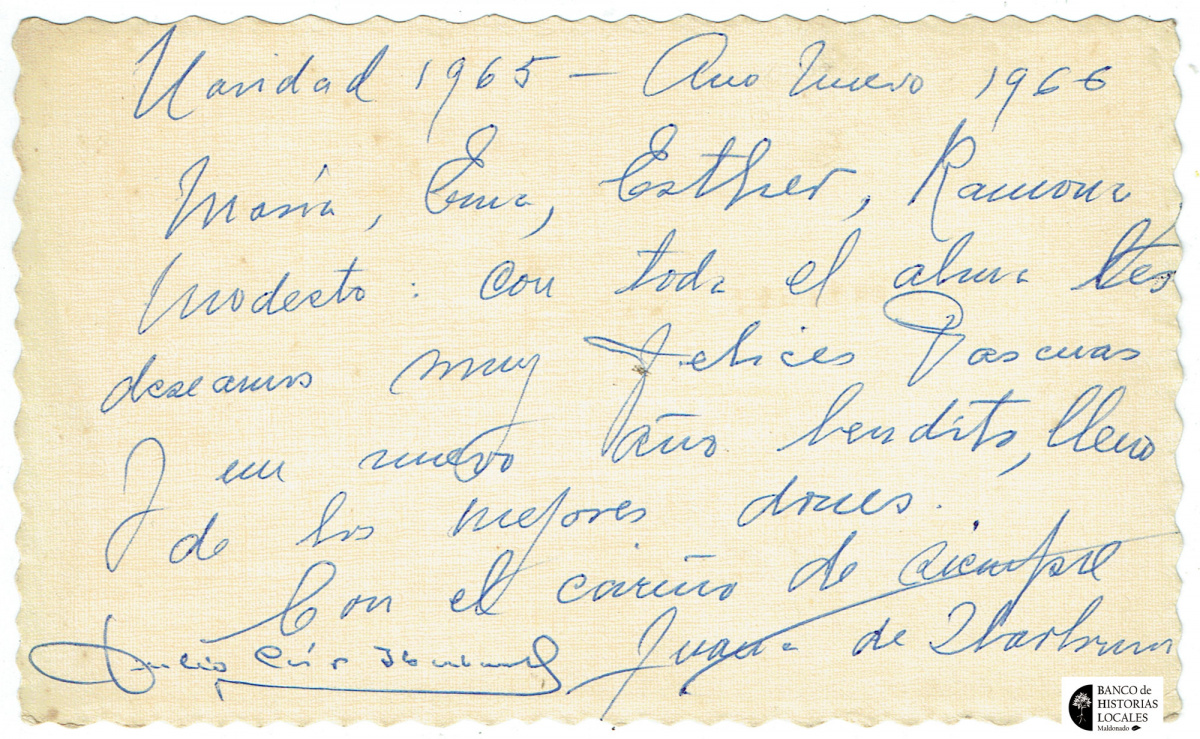 Navidad 1965 - Año Nuevo 1966
María, Ema, Esther, Ramona
Modesto: con toda el alma les
deseamos muy felices Pascuas
y un nuevo año bendito, lleno
de los mejores dones.
Con el cariño de siempre
Juana de Ibarbourou
Julio César Ibarbourou
BANCO de
HISTORIAS
LOCALES
Maldonado